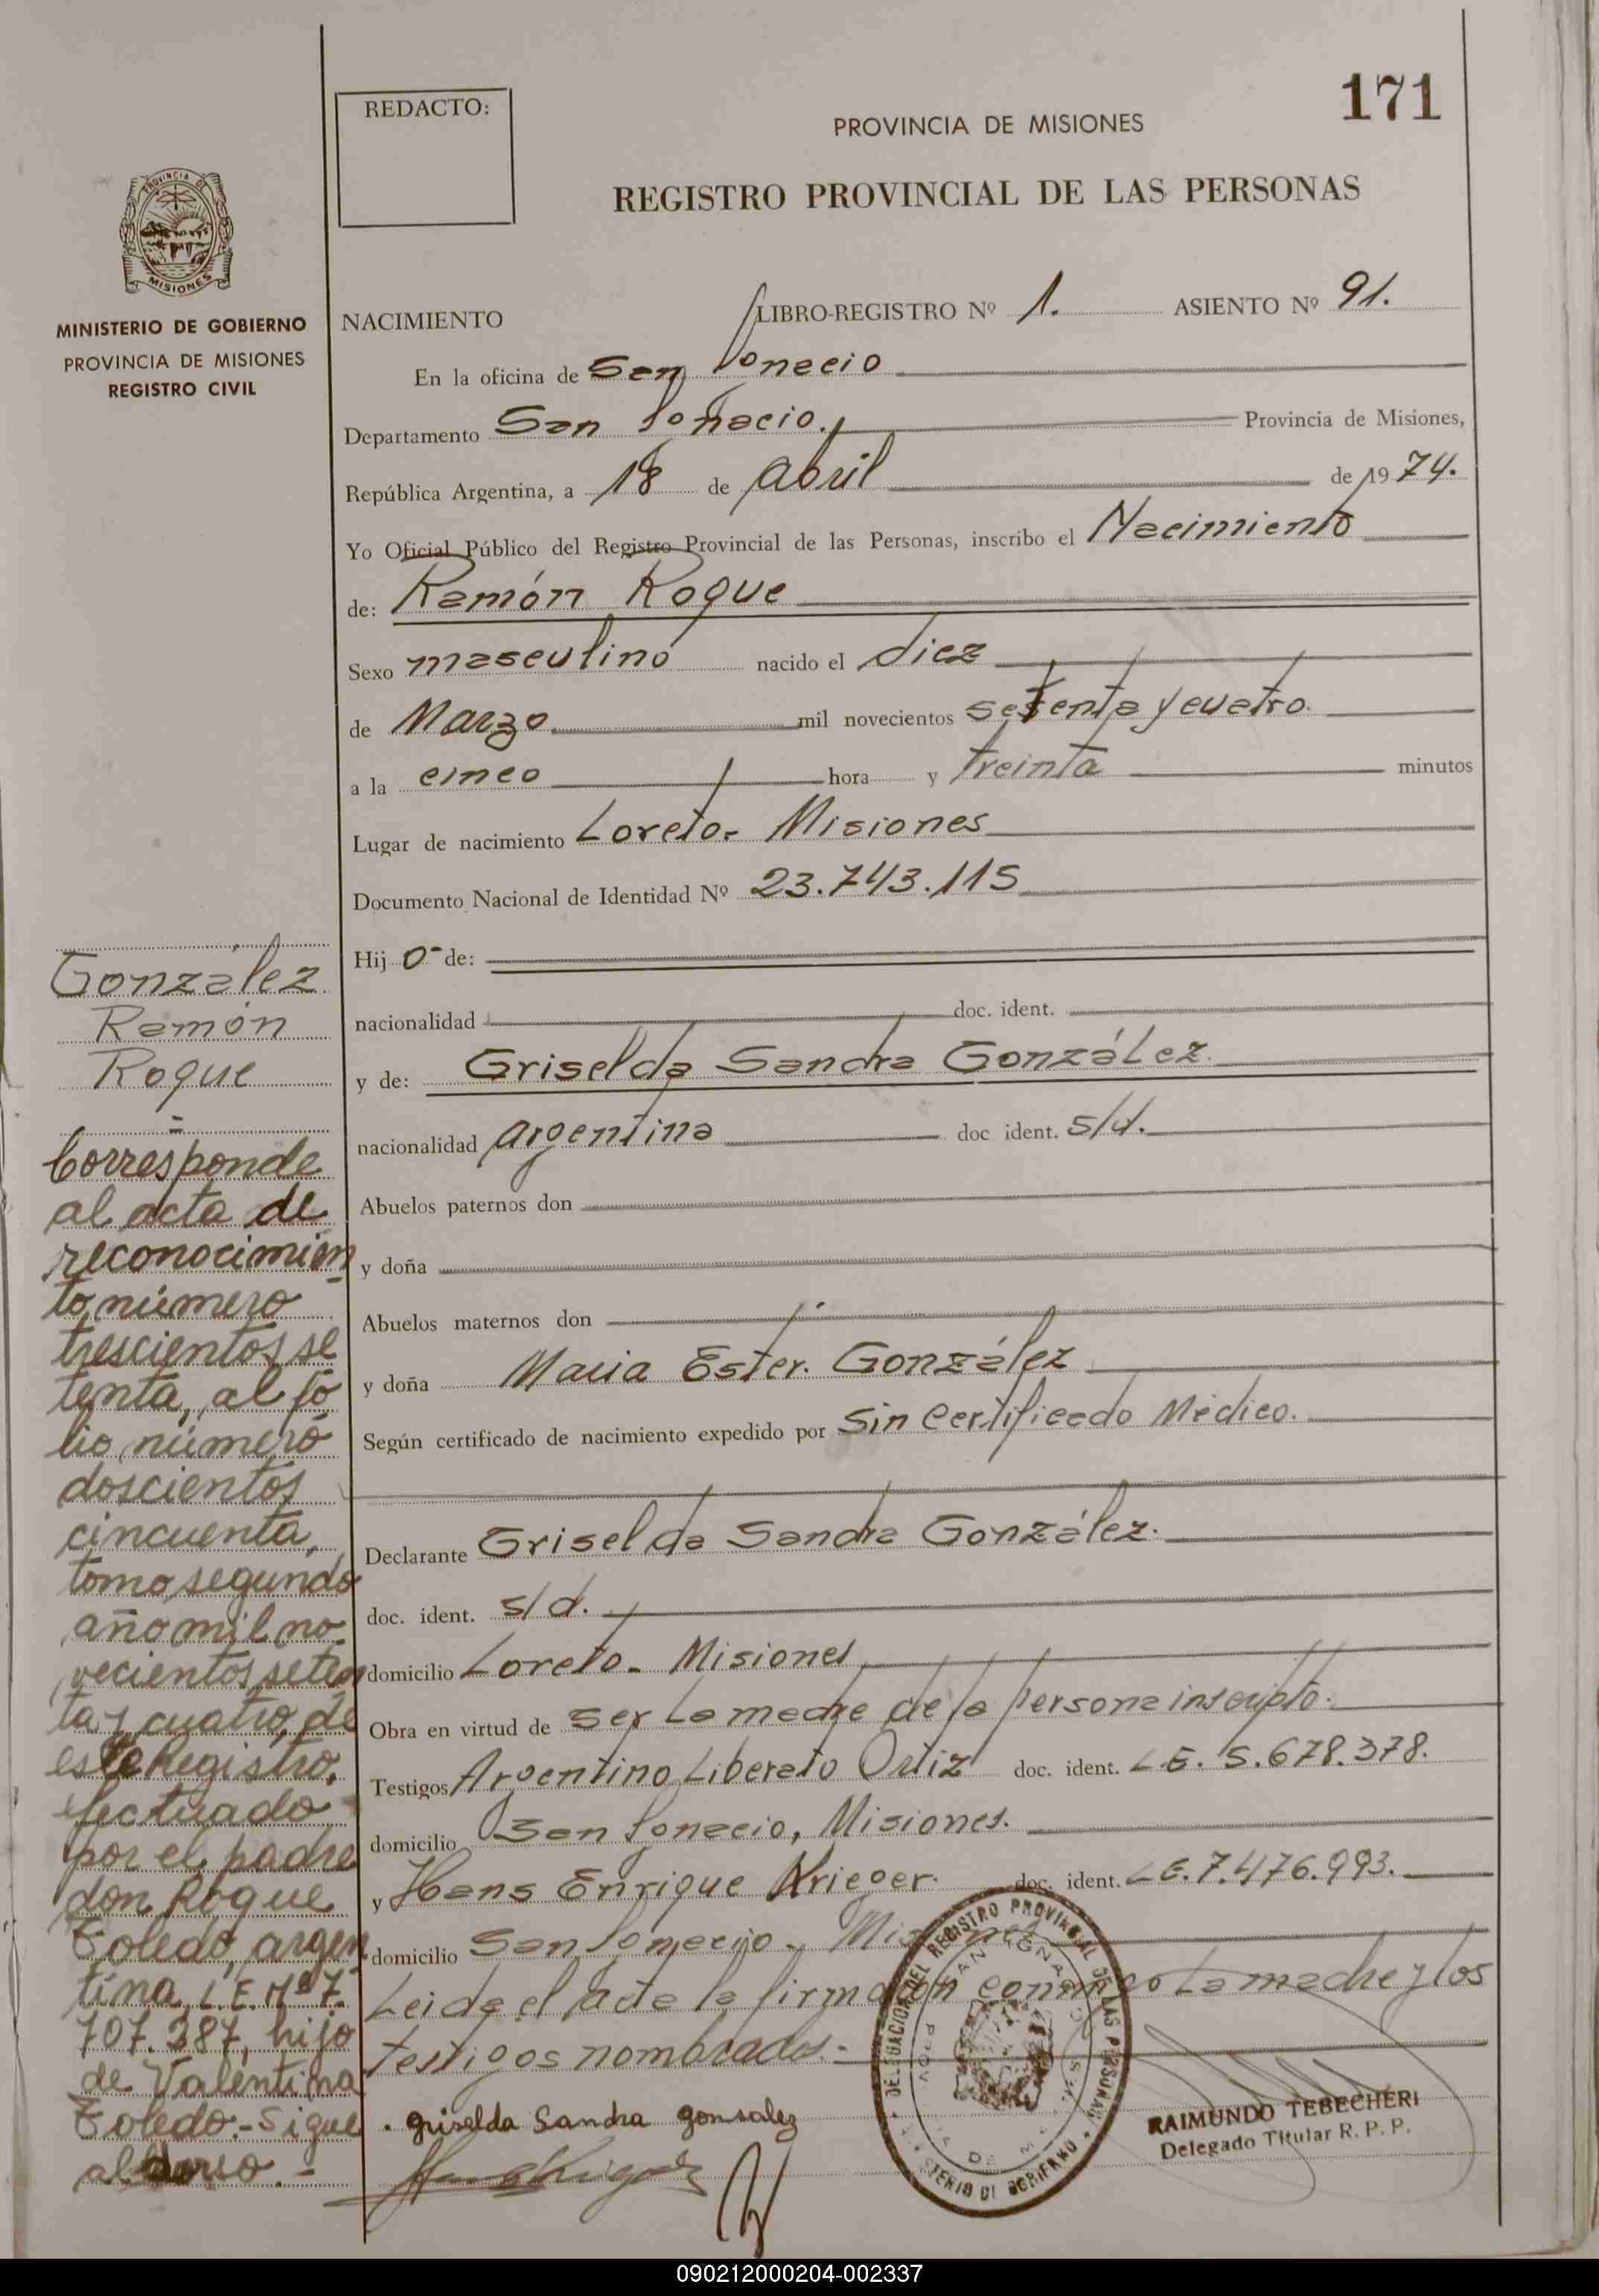 171
REDACTO:
PROVINCIA DE MISIONES
REGISTRO PROVINCIAL DE LAS PERSONAS
PROVINCIA DE
MISIONES
MINISTERIO DE GOBIERNO
PROVINCIA DE MISIONES
REGISTRO CIVIL
NACIMIENTO LIBRO-REGISTRO Nº 1. ASIENTO Nº 91.
En la oficina de San Ignacio
Departamento San Ignacio. Provincia de Misiones,
República Argentina, a 18 de Abril de 1974.
Yo Oficial Público del Registro Provincial de las Personas, inscribo el Nacimiento
de: Ramón Roque
Sexo masculino nacido el diez
de Marzo mil novecientos setenta y cuatro.
a la cinco hora y treinta minutos
Lugar de nacimiento Loreto- Misiones
Documento Nacional de Identidad Nº 23.743.115
Hij o- de:
nacionalidad doc. ident.
y de: Griselda Sandra González.
nacionalidad argentina doc ident. s/d.
Abuelos paternos don
y doña
Abuelos maternos don
y doña Maria Ester. González
Según certificado de nacimiento expedido por Sin Certificado Médico.
Declarante Griselda Sandra González.
doc. ident. s/d.
domicilio Loreto- Misiones
Obra en virtud de ser la madre de la persona inscripto.
Testigos Argentino Liberato Ortiz doc. ident. L.E. 5.678.378.
domicilio San Ignacio, Misiones.
y Hans Enrique Krieger. doc. ident. L.E. 7.476.993.
domicilio San Ignacio- Misiones
Leida el acta la firman conmigo la madre y los
testigos nombrados.-
griselda Sandra gonsalez
González
Ramón
Roque
=
Corresponde
al acta de
reconocimien
to, número
trescientos se
tenta, al fo
lio, número
doscientos
cincuenta,
tomo segundo
año mil no
vecientos seten
ta y cuatro, de
este Registro,
efectuado
por el padre
don Roque
Toledo, argen
tina, L.E. Nº 7.
707.387, hijo
de Valentina
Toledo.- Sigue
al dorso.-
DELEGACION DEL REGISTRO PROVINCIAL DE LAS PERSONAS
SAN IGNACIO
RAIMUNDO TEBECHERI
Delegado Titular R. P. P.
090212000204-002337